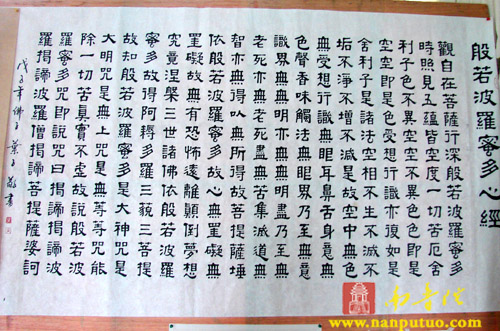 般若波羅蜜多心經
觀自在菩薩行深般若波羅蜜多
時照見五蘊皆空度一切苦厄舍
利子色不異空空不異色色即是
空空即是色受想行識亦復如是
舍利子是諸法空相不生不滅不
垢不淨不增不減是故空中無色
無受想行識無眼耳鼻舌身意無
色聲香味觸法無眼界乃至無意
識界無無明亦無無明盡乃至無
老死亦無老死盡無苦集滅道無
智亦無得以無所得故菩提薩埵
依般若波羅蜜多故心無罣礙無
罣礙故無有恐怖遠離顛倒夢想
究竟涅槃三世諸佛依般若波羅
蜜多故得阿耨多羅三藐三菩提
故知般若波羅蜜多是大神咒是
大明咒是無上咒是無等等咒能
除一切苦真實不虛故說般若波
羅蜜多咒即說咒曰揭諦揭諦波
羅揭諦波羅僧揭諦菩提薩婆訶
戊子年佛子葉子書
南普陀
www.nanputuo.com